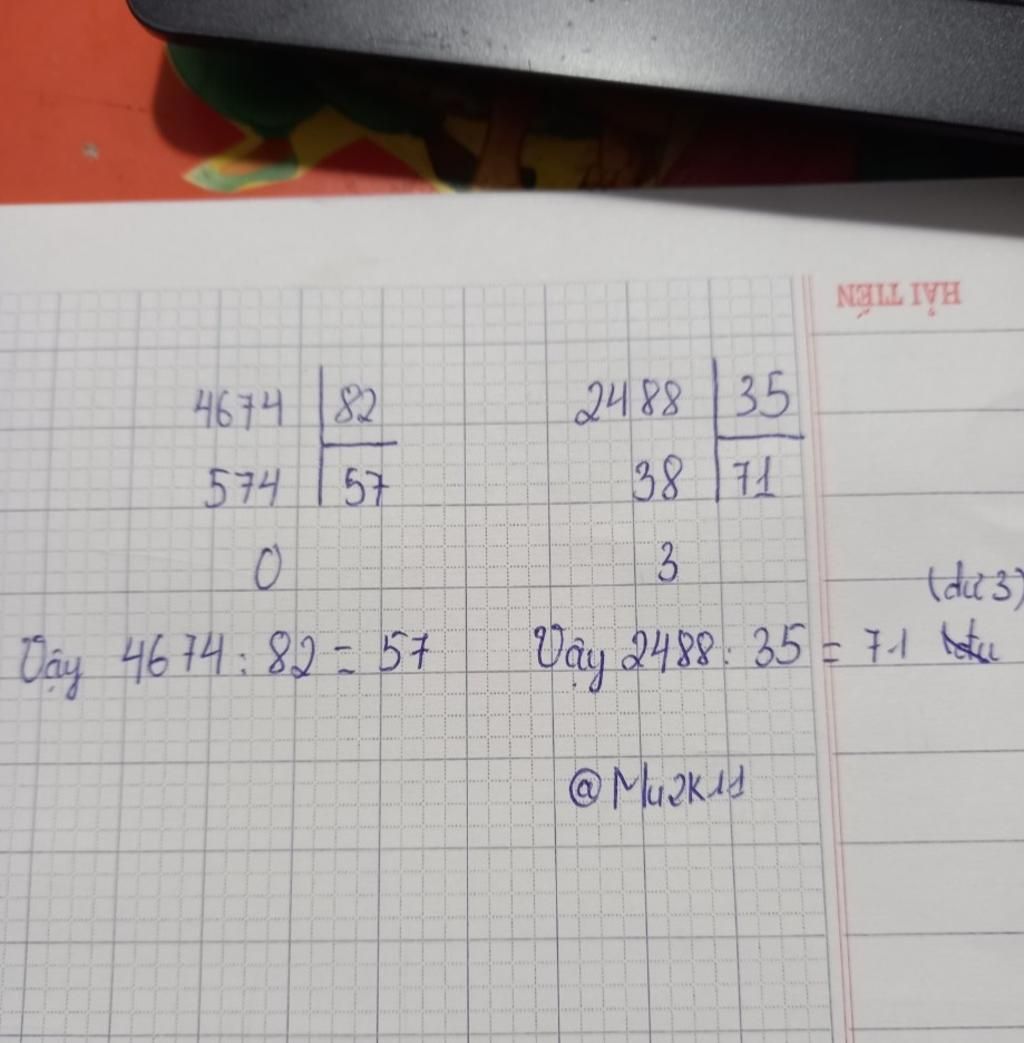 HẢI TIẾN
4674 82 2488 35
574 57 38 71
0 3
(dư 3)
Vậy 4674 : 82 = 57 Vậy 2488 : 35 = 71
@Mu2K11